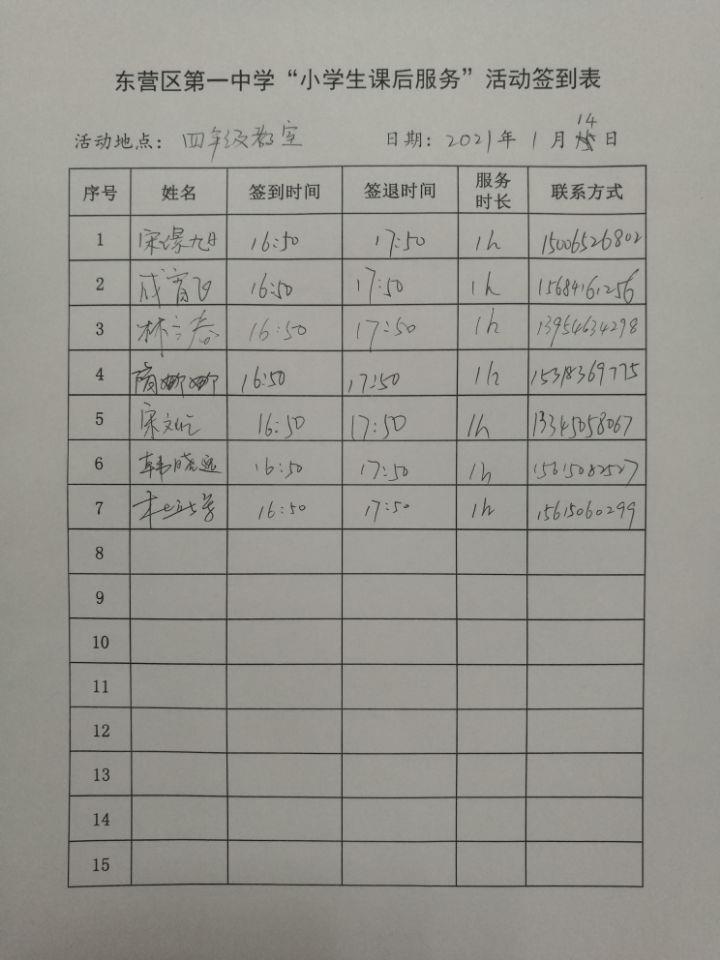 东营区第一中学“小学生课后服务”活动签到表
活动地点：四年级教室 日期：2021年1月14日
序号 姓名 签到时间 签退时间 服务时长 联系方式
1 16:50 17:50 1h 15006526802
2 成育飞 16:50 17:50 1h 15684161256
3 林立春 16:50 17:50 1h 13954634298
4 商娜娜 16:50 17:50 1h 15318369775
5 16:50 17:50 1h 13345058067
6 韩晓远 16:50 17:50 1h 15615082527
7 16:50 17:50 1h 15615060299
8
9
10
11
12
13
14
15